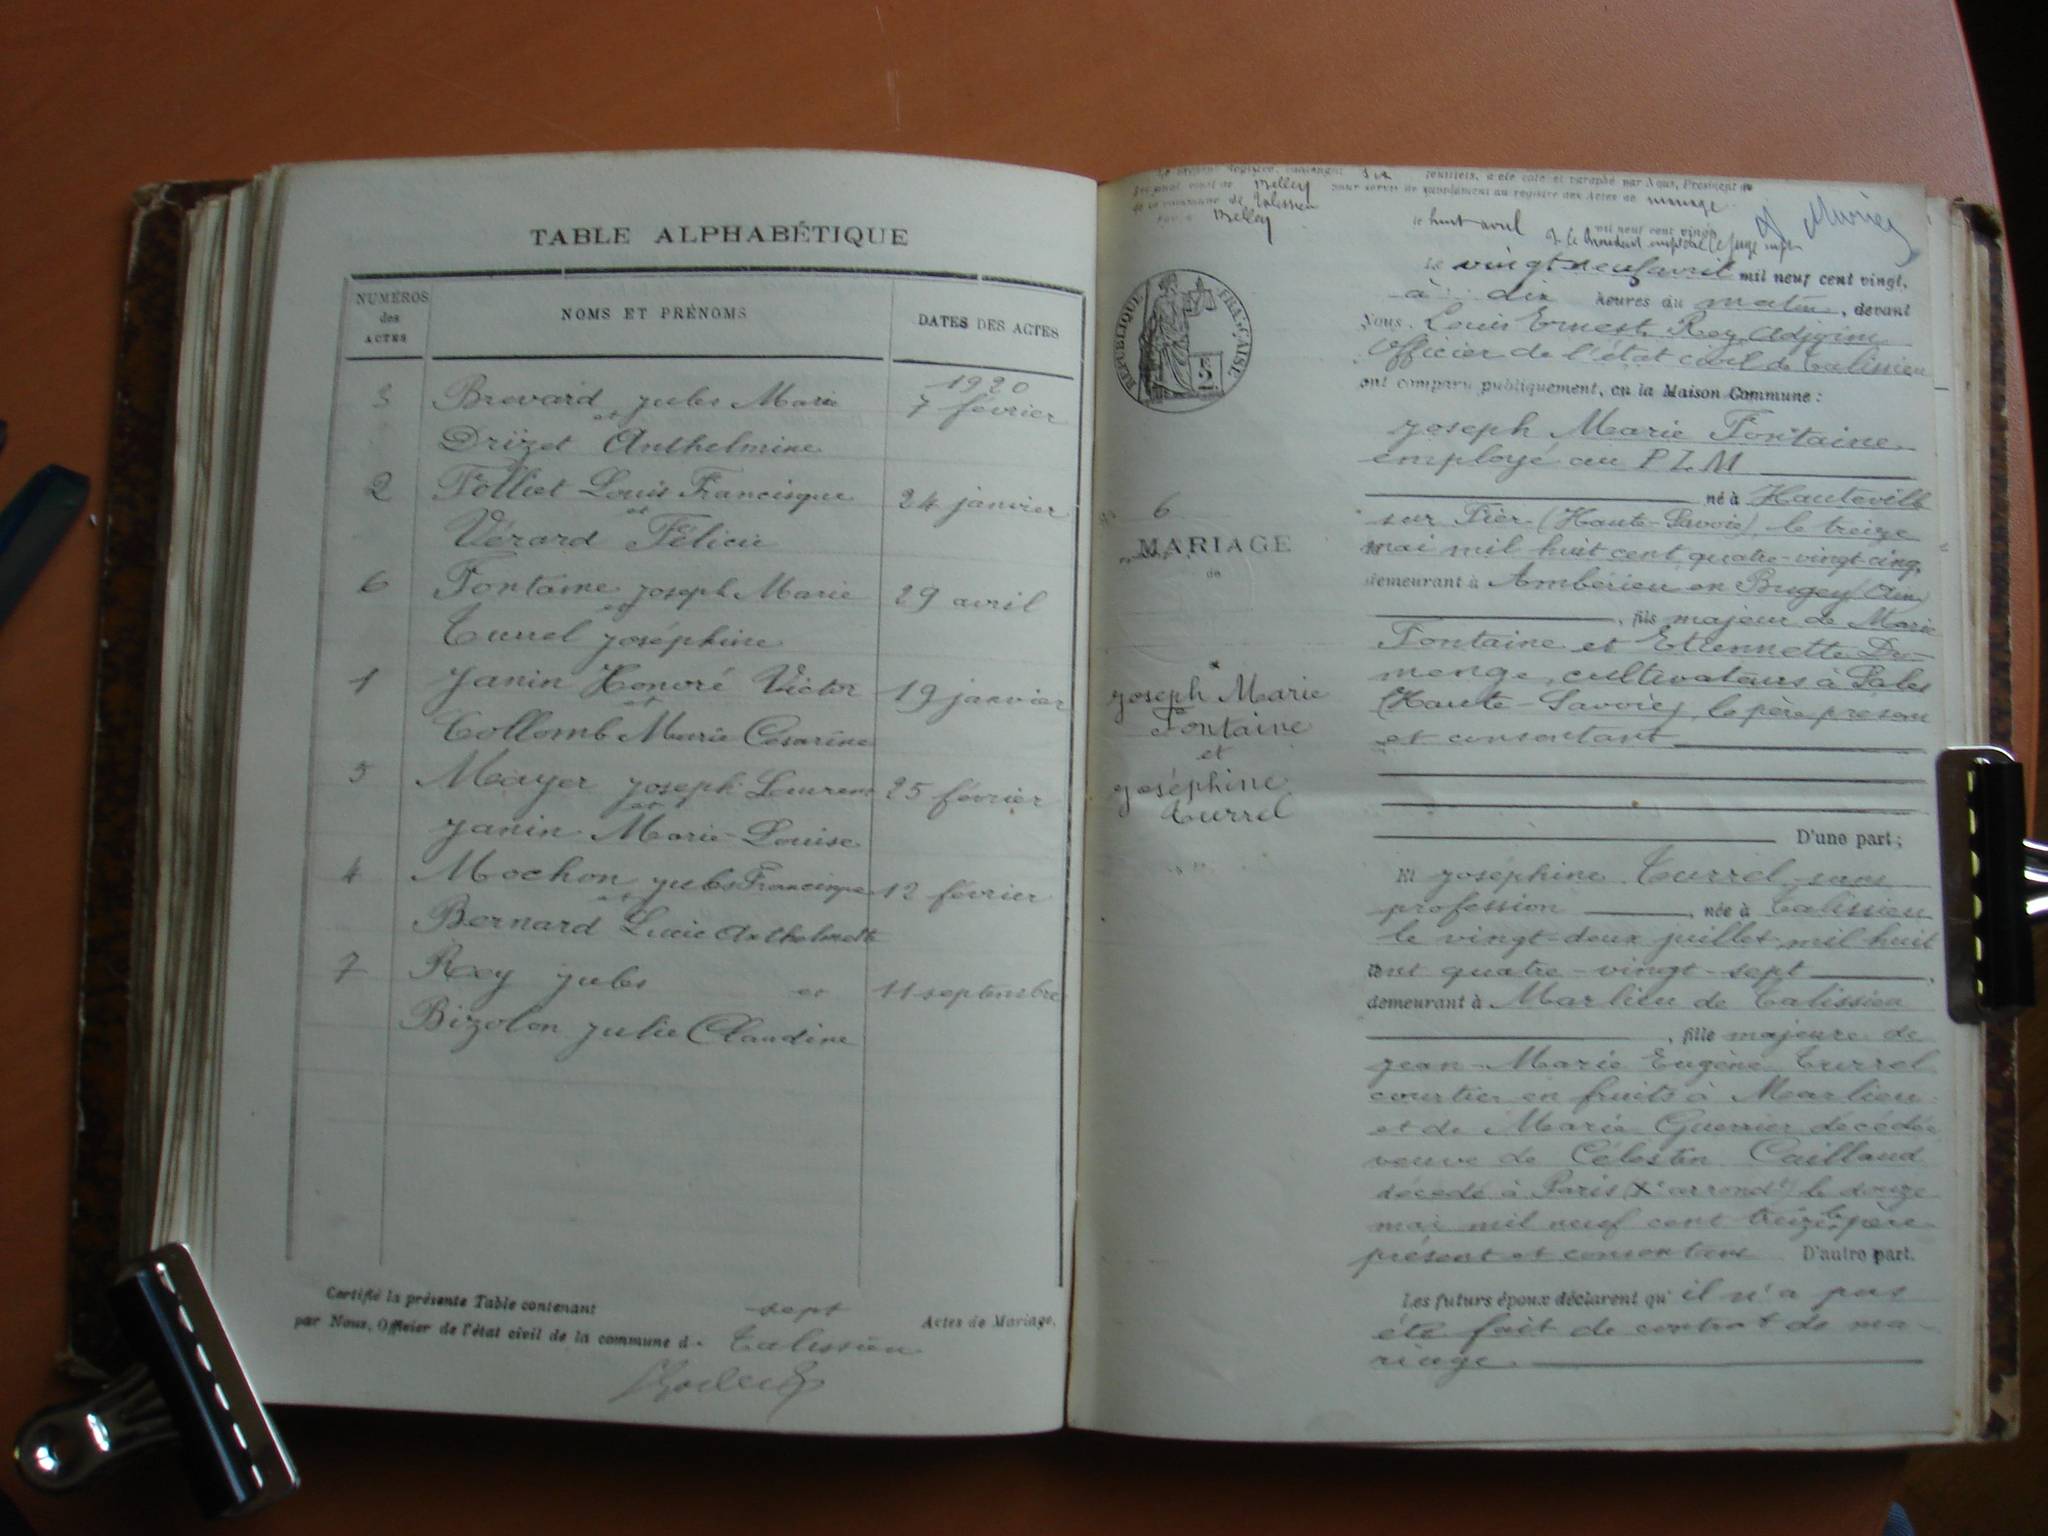 TABLE ALPHABÉTIQUE
NUMÉROS des ACTES
NOMS ET PRÉNOMS
DATES DES ACTES
1920
3 Brevard Jules Marie 7 février
et
Drizet Anthelmine
2 Folliet Louis Francisque 24 janvier
et
Vérard Félicie
6 Fontaine Joseph Marie 29 avril
et
Turrel Joséphine
1 Janin Honoré Victor 19 janvier
et
Collomb Marie Césarine
5 Mayer Joseph Laurent 25 février
et
Janin Marie-Louise
4 Mochon Jules Francisque 12 février
et
Bernard Lucie Anthelmette
7 Rey Jules et 11 septembre
Bizolon Julie Claudine
Certifié la présente Table contenant sept Actes de Mariage,
par Nous, Officier de l'état civil de la commune d. Talissieu
Le présent registre, contenant six feuillets, a été coté et paraphé par Nous, Président du
tribunal civil de Belley pour servir de supplément au registre des Actes de mariage
de la commune de Talissieu
Belley le huit avril mil neuf cent vingt
RÉPUBLIQUE FRANÇAISE
5
Le vingt-neuf avril mil neuf cent vingt,
à dix heures du matin, devant
Nous, Louis Ernest Rey, Adjoint
Officier de l'état civil de Talissieu
ont comparu publiquement, en la Maison Commune :
Joseph Marie Fontaine
employé au P L M
né à Hauteville
sur Fier (Haute-Savoie), le treize
mai mil huit cent quatre-vingt-cinq,
demeurant à Ambérieu en Bugey (Ain)
, fils majeur de Marie
Fontaine et Etiennette Du-
menge, cultivateurs à Sales
(Haute-Savoie), le père présent
et consentant
D'une part ;
N° 6
MARIAGE
de
Joseph Marie
Fontaine
et
Joséphine
Turrel
Et Joséphine Turrel sans
profession , née à Talissieu
le vingt-deux juillet mil huit
cent quatre-vingt-sept ,
demeurant à Marlieu de Talissieu
, fille majeure de
Jean-Marie Eugène Turrel
courtier en fruits à Marlieu
et de Marie Guerrier décédée
veuve de Célestin Caillaud
décédé à Paris (Xe arrondt) le douze
mai mil neuf cent treize, le père
présent et consentant D'autre part.
Les futurs époux déclarent qu'il n'a pas
été fait de contrat de ma-
riage.